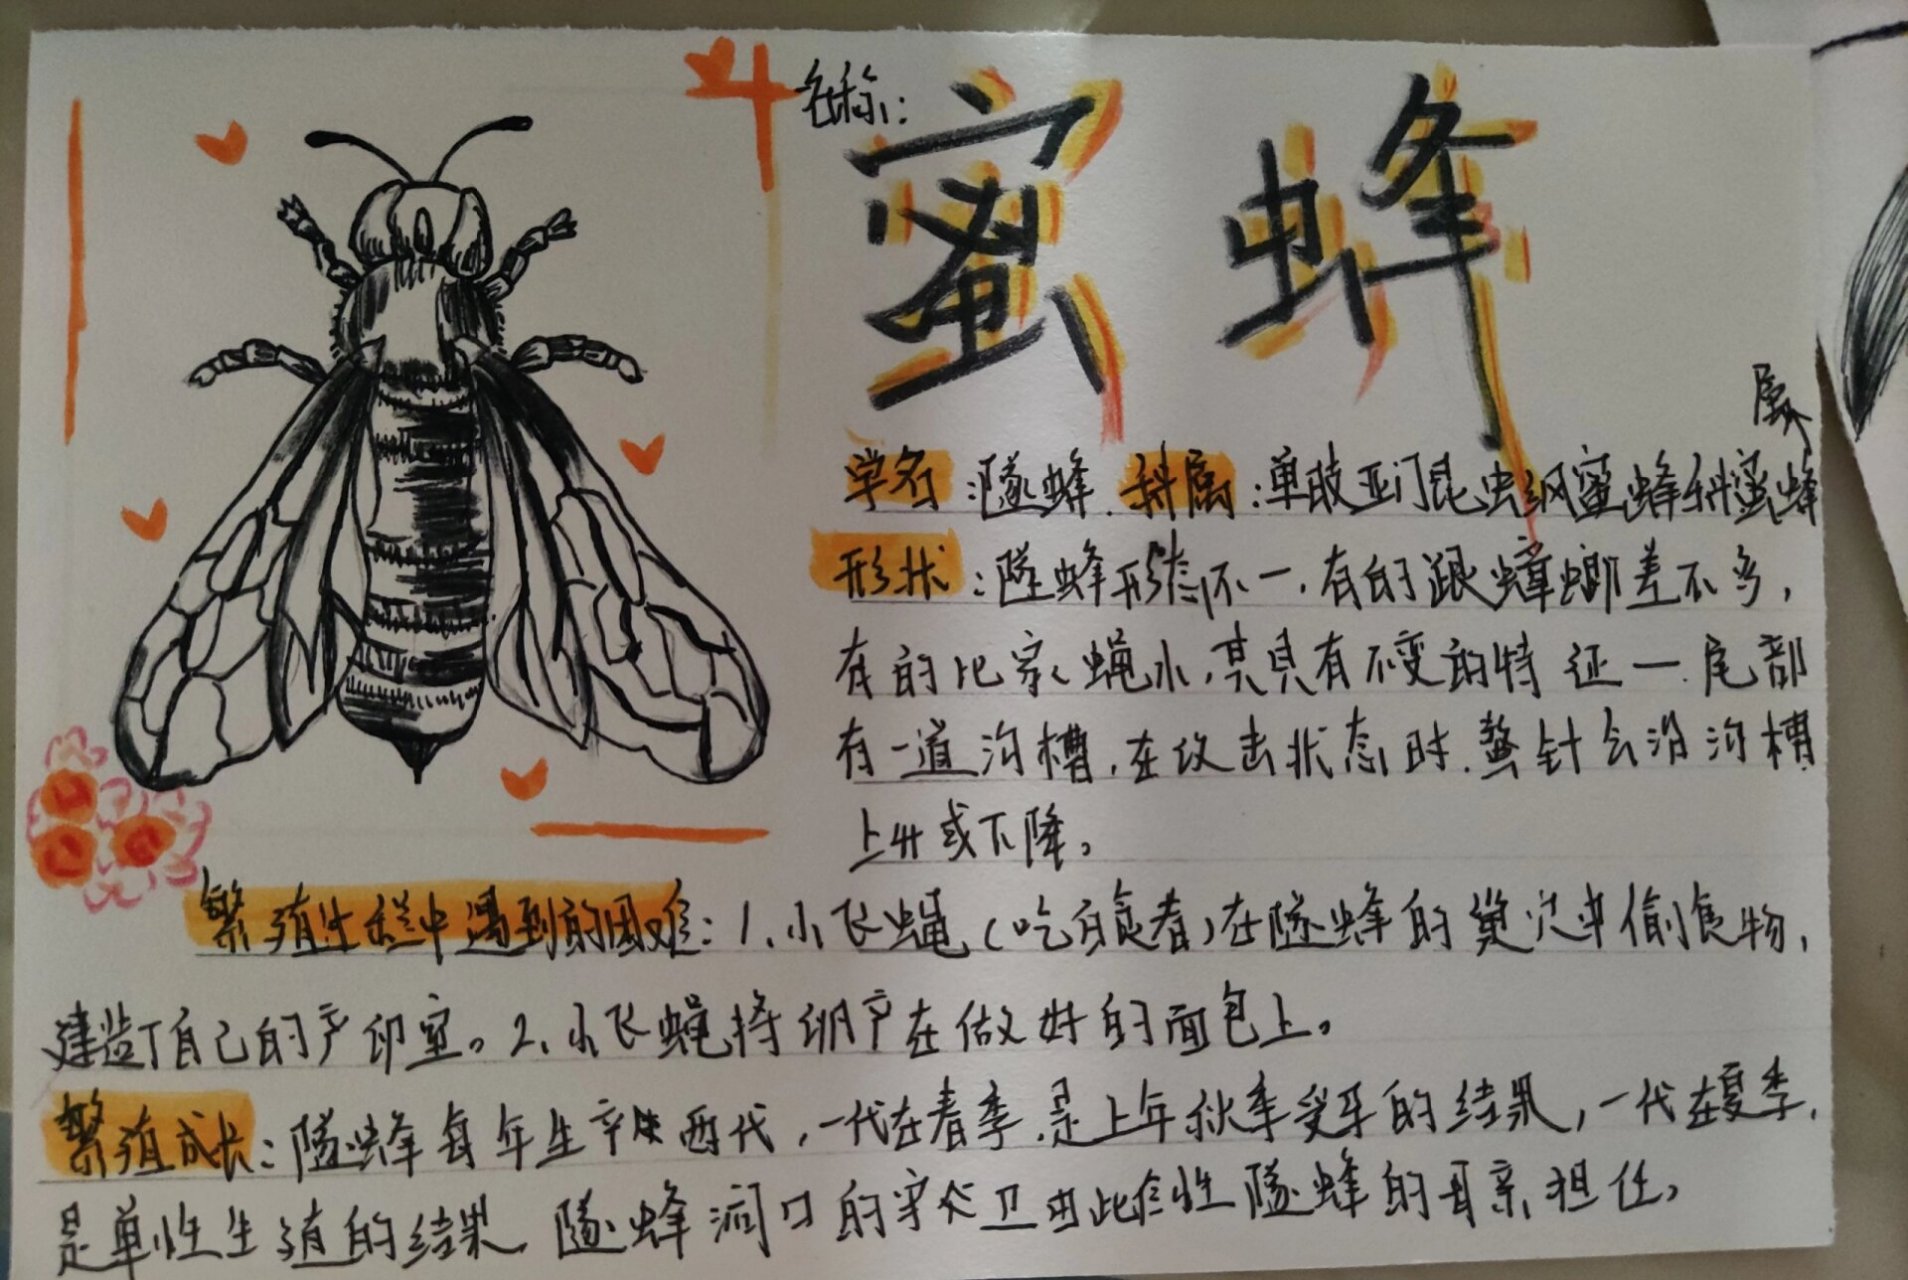 名称：
蜜蜂
属
学名：隧蜂．科属：单肢亚门昆虫纲蜜蜂科蜜蜂
形状：隧蜂形态不一，有的跟蟑螂差不多，
有的比家蝇小，其具有不变的特征一尾部
有一道沟槽，在攻击状态时．螯针会沿沟槽
上升或下降。
繁殖过程中遇到的困难：1、小飞蝇（吃白食者）在隧蜂的巢穴中偷食物，
建造了自己的产卵室。2、小飞蝇将卵产在做好的面包上。
繁殖成长：隧蜂每年生产两代，一代在春季，是上年秋季受孕的结果，一代在夏季，
是单性生殖的结果，隧蜂洞口的守卫由雌性隧蜂的母亲担任。